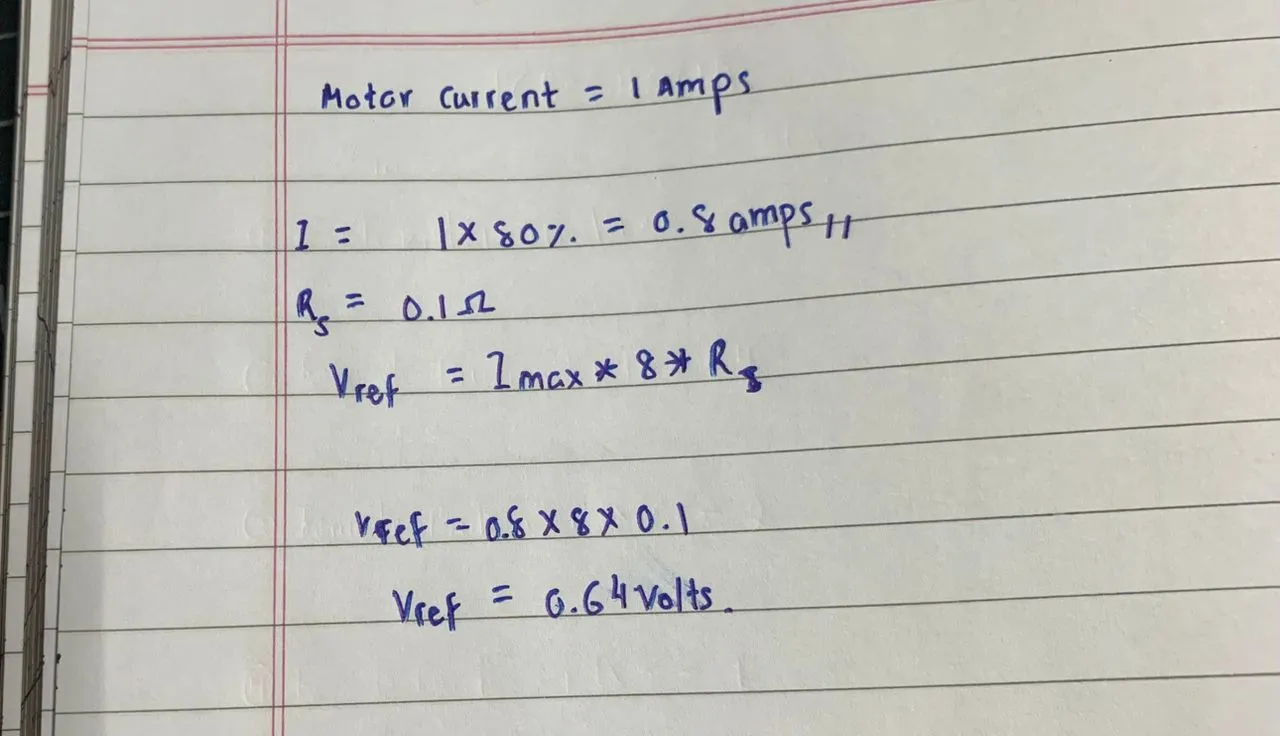 Motor current = 1 Amps
I = 1 × 80% = 0.8 amps //
Rs = 0.1 Ω
Vref = Imax * 8 * Rs
Vref = 0.8 × 8 × 0.1
Vref = 0.64 Volts.